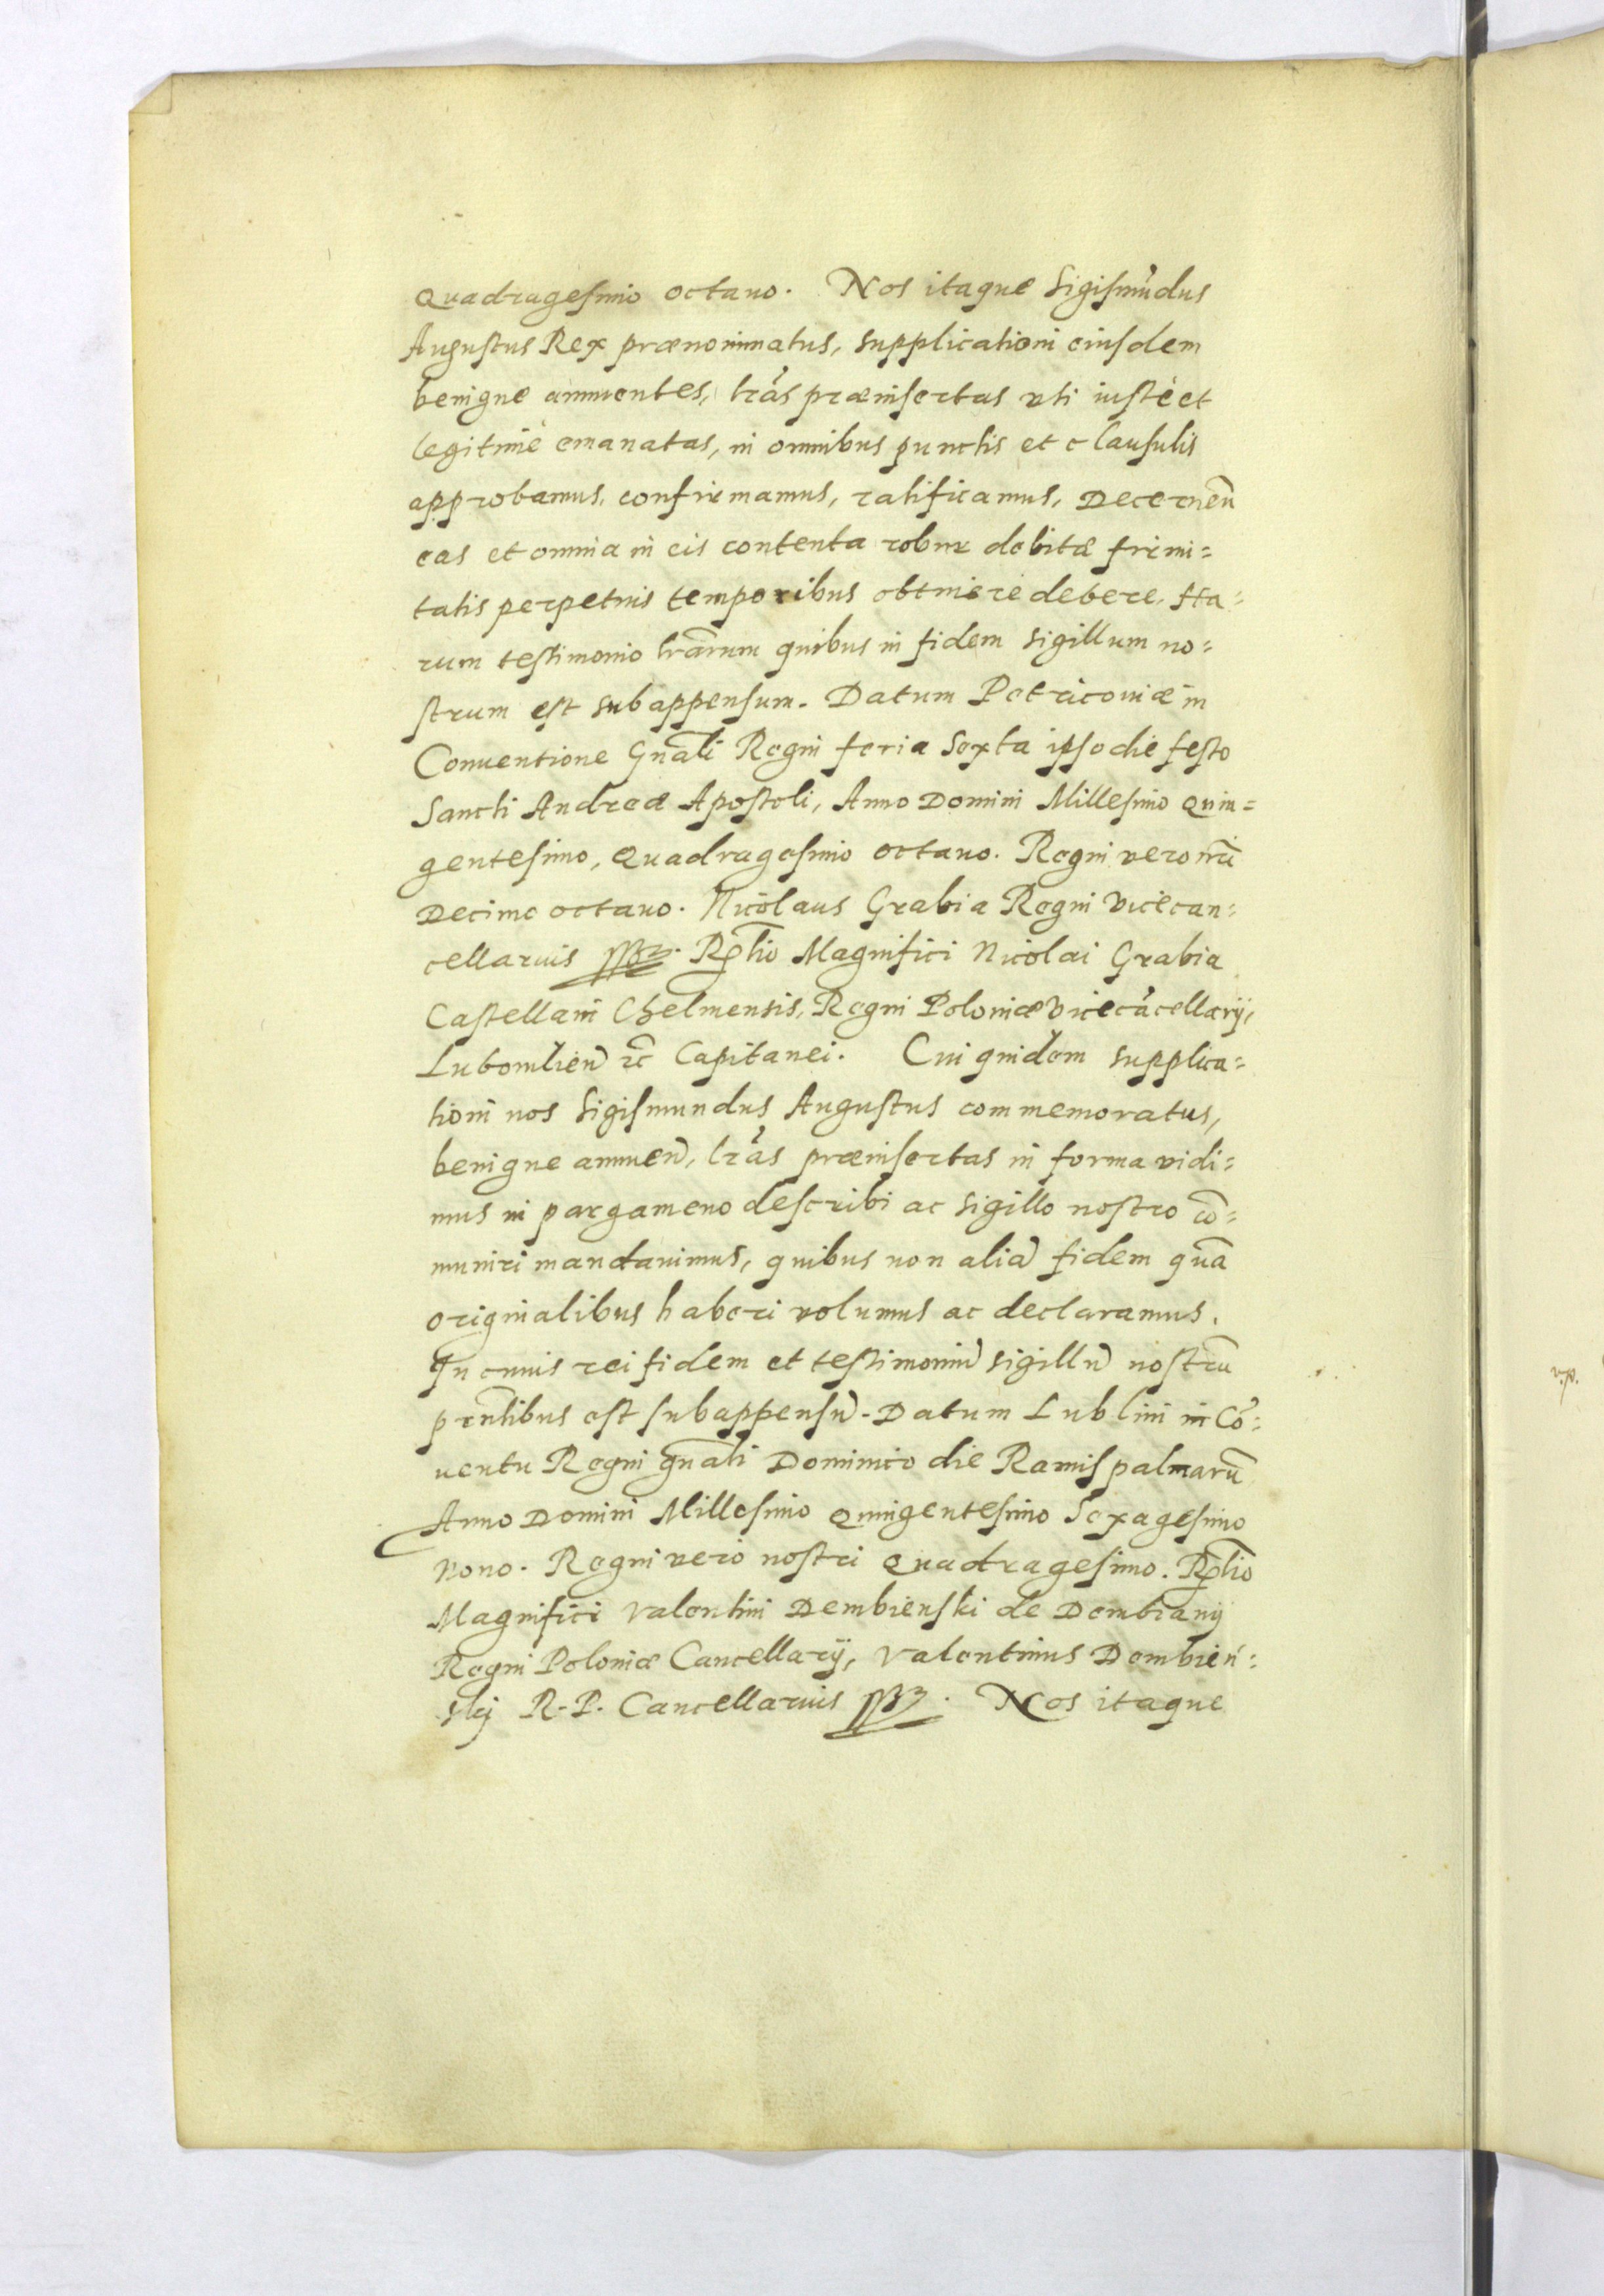 Quadragesimo octauo. Nos itaque Sigismũdus
Augustus Rex prænominatus, supplicationi eiusdem
benigne annuentes, lrãs præinsertas vti iustè et
legitimè emanatas, in omnibus punctis et clausulis
approbamus, confirmamus, ratificamus, Decerneñ
eas et omnia in eis contenta robur debitæ firmi=
tatis perpetuis temporibus obtinere debere. Ha=
rum testimonio lrãrum quibus in fidem sigillum no=
strum est subappensum. Datum Petricouiæ in
Conuentione Gnãli Regni feria Sexta ipso die festo
Sancti Andreæ Apostoli, Anno Domini Millesimo Quin=
gentesimo, Quadragesimo octauo. Regni vero nrĩ
Decimo octauo. Nicolaus Grabia Regni Vicecan=
cellarius sspt. Rel̃tio Magnifici Nicolai Grabia
Castellani Chelmensis, Regni Poloniæ Vicecãcellarij,
Lubomlieñ etc̃ Capitanei. Cui quidem supplica=
tioni nos Sigismundus Augustus commemoratus,
benigne annueñ, lrãs præinsertas in forma vidi=
mus in pargameno describi ac sigillo nostro cõ=
muniri mandauimus, quibus non aliã fidem quã
originalibus haberi volumus ac declaramus.
In cuius rei fidem et testimoniũ sigillũ nostrũ
prñtibus est subappensũ. Datum Lublini in Cõ=
uentu Regni gnãli Dominico die Ramis palmarũ
Anno Domini Millesimo Quingentesimo Sexagesimo
Nono. Regni vero nostri Quadragesimo. Rel̃tio
Magnifici Valentini Dembienski de Dembiany
Regni Poloniæ Cancellarij, Valentinus Dembień=
skj R. P. Cancellarius sspt. Nos itaque
v.p.